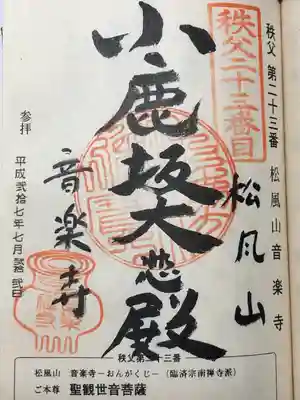 秩父 第二十三番 松風山 音楽寺
秩父二十三番目
松風山
小鹿坂大悲殿
音楽寺
参拝
平成弐拾七年七月 弐日
秩父第二十三番
松風山 音楽寺－おんがくじ－(臨済宗南禅寺派)
ご本尊 聖観世音菩薩